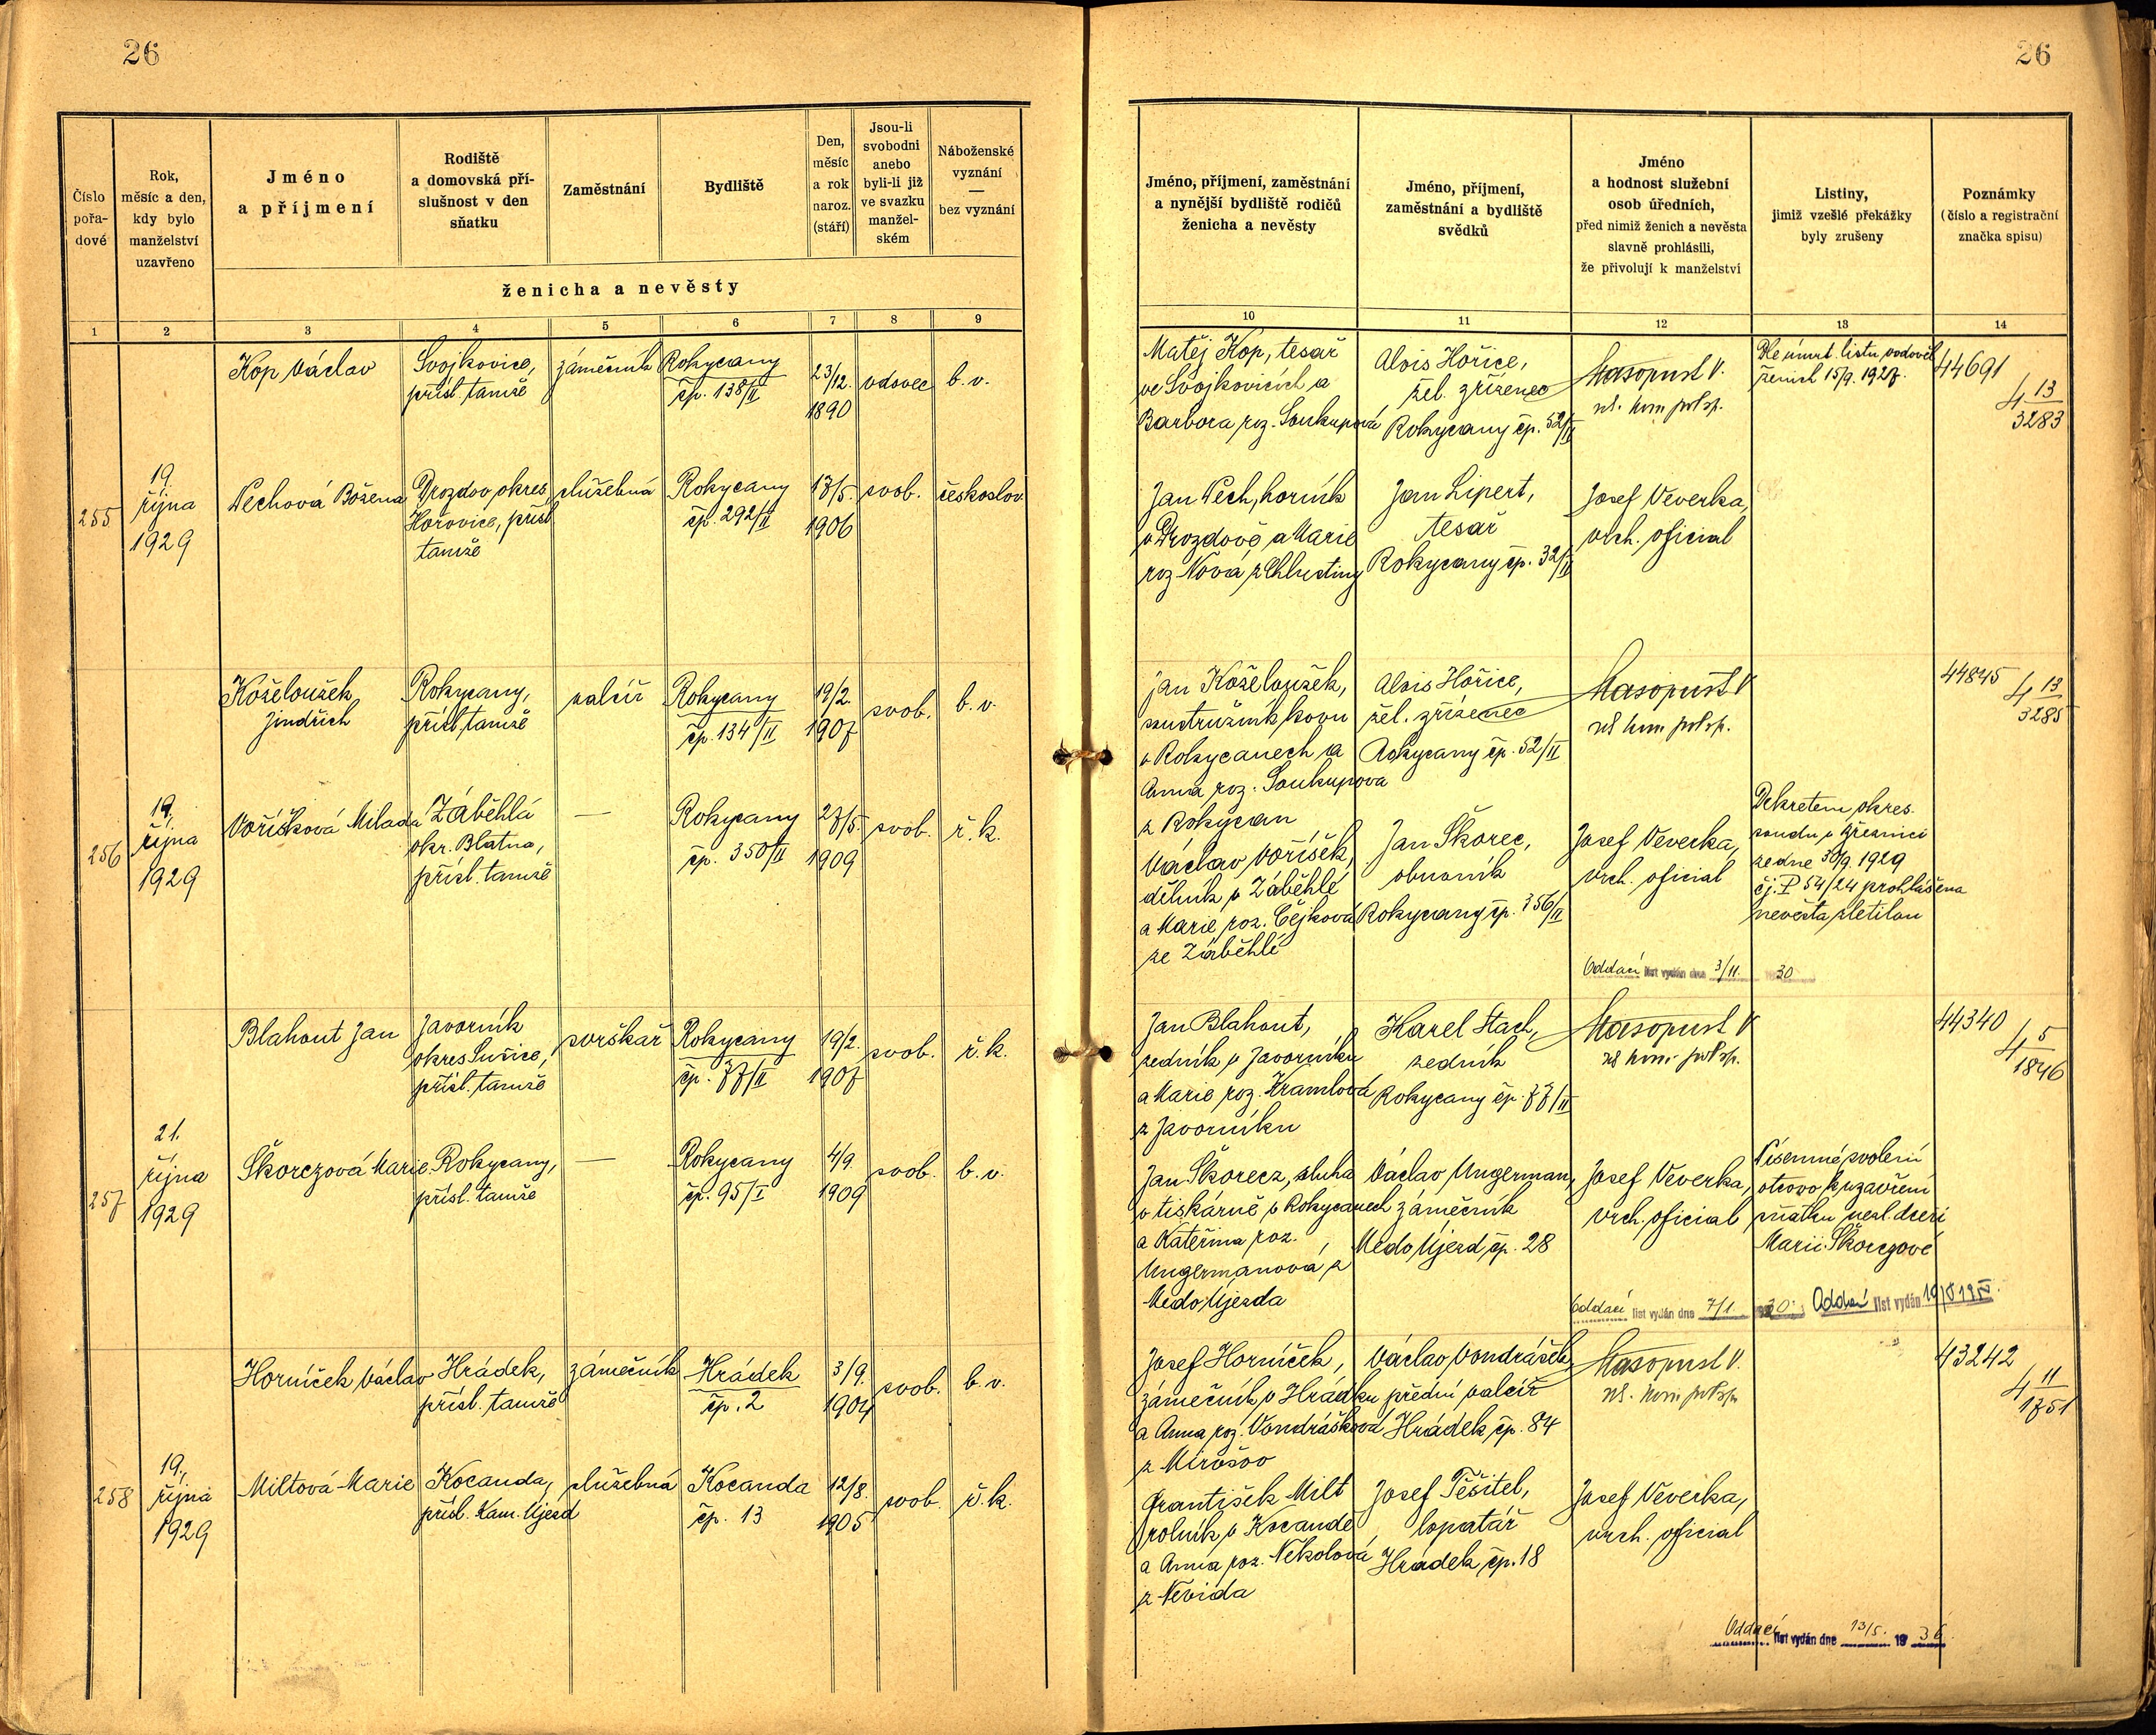 26
26
Číslo pořa-dové
Rok, měsíc a den, kdy bylo manželství uzavřeno
Jméno a příjmení
Rodiště a domovská pří-slušnost v den sňatku
Zaměstnání
Bydliště
Den, měsíc a rok naroz. (stáří)
Jsou-li svobodni anebo byli-li již ve svazku manžel-ském
Náboženské vyznání — bez vyznání
ženicha a nevěsty
1 2 3 4 5 6 7 8 9
Kop Václav
Svojkovice,
přísl. tamže
zámečník
Rokycany
čp. 138/II
23/12.
1890
vdovec
b. v.
255
19.
října
1929
Pechová Božena
Drozdov, okres
Hořovice, přísl.
tamže
služebná
Rokycany
čp. 292/II
17/5.
1906
svob.
českoslov
Koželoužek
Jindřich
Rokycany,
přísl. tamže
valcíř
Rokycany
čp. 134/II
19/2.
1907
svob.
b. v.
256
19.
října
1929
Voříšková Milada
Záběhlá
okr. Blatna,
přísl. tamže
—
Rokycany
čp. 350/II
27/5.
1909
svob.
ř. k.
Blahout Jan
Javorník
okres Sušice,
přísl. tamže
svrškař
Rokycany
čp. 77/II
19/2.
1907
svob.
ř. k.
257
21.
října
1929
Škorczová Marie
Rokycany,
přísl. tamže
—
Rokycany
čp. 95/I
4/9.
1909
svob.
b. v.
Horníček Václav
Hrádek,
přísl. tamže
zámečník
Hrádek
čp. 2
3/9.
1904
svob.
b. v.
258
19.
října
1929
Miltová Marie
Kocanda,
přísl. Kam. Újezd
služebná
Kocanda
čp. 13
12/8.
1905
svob.
ř. k.
Jméno, příjmení, zaměstnání a nynější bydliště rodičů ženicha a nevěsty
Jméno, příjmení, zaměstnání a bydliště svědků
Jméno a hodnost služební osob úředních, před nimiž ženich a nevěsta slavně prohlásili, že přivolují k manželství
Listiny, jimiž vzešlé překážky byly zrušeny
Poznámky (číslo a registrační značka spisu)
10 11 12 13 14
Matěj Kop, tesař
ve Svojkovicích a
Barbora roz. Soukupová
Alois Hořice,
žel. zřízenec
Rokycany čp. 52/II
Masopust V.
Dle úmrt. listu vdověl
ženich 15/9. 1927.
44691
4 13/3283
Jan Pech, horník
v Drozdově a Marie
roz. Nová z Chlustiny
Jan Lipert,
tesař
Rokycany čp. 32/II
Josef Veverka,
vrch. oficial
Jan Koželoužek,
soustružník kovu
v Rokycanech a
Anna roz. Soukupova
z Rokycan
Alois Hořice,
žel. zřízenec
Rokycany čp. 52/II
Masopust V
44845
4 13/3285
Václav Voříšek,
dělník v Záběhlé
a Marie roz. Čejková
ze Záběhlé
Jan Škorec,
obuvník
Rokycany čp. 356/II
Josef Veverka,
vrch. oficial
Dekretem okres.
soudu v Březnici
ze dne 30/9. 1929
čj. P 54/24 prohlášena
nevěsta zletilou
Oddací list vydán dne 3/11. 30
Jan Blahout,
zedník v Javorníku
a Marie roz. Kramlová
z Javorníku
Karel Stach,
zedník
Rokycany čp. 77/II
Masopust V
44340
4 5/1846
Jan Škorecz, sluha
v tiskárně v Rokycanech
a Kateřina roz.
Ungermanová z
Medo Újezda
Václav Ungerman,
zámečník
Medo Újezd čp. 28
Josef Veverka,
vrch. oficial
Písemné svolení
otcovo k uzavření
sňatku nezl. dceři
Marii Škorczové
Oddací list vydán dne 7/1 30
Oddací list vydán
Josef Horníček,
zámečník v Hrádku
a Anna roz. Vondrášková
z Mirošov
Václav Vondrášek
přední valcíř
Hrádek čp. 84
Masopust V.
43242
4 11/1751
František Milt
rolník v Kocandě
a Anna roz. Nekolová
z Nevida
Josef Těšitel,
lopatář
Hrádek čp. 18
Josef Veverka,
vrch. oficial
Oddací list vydán dne 13/5. 19 36